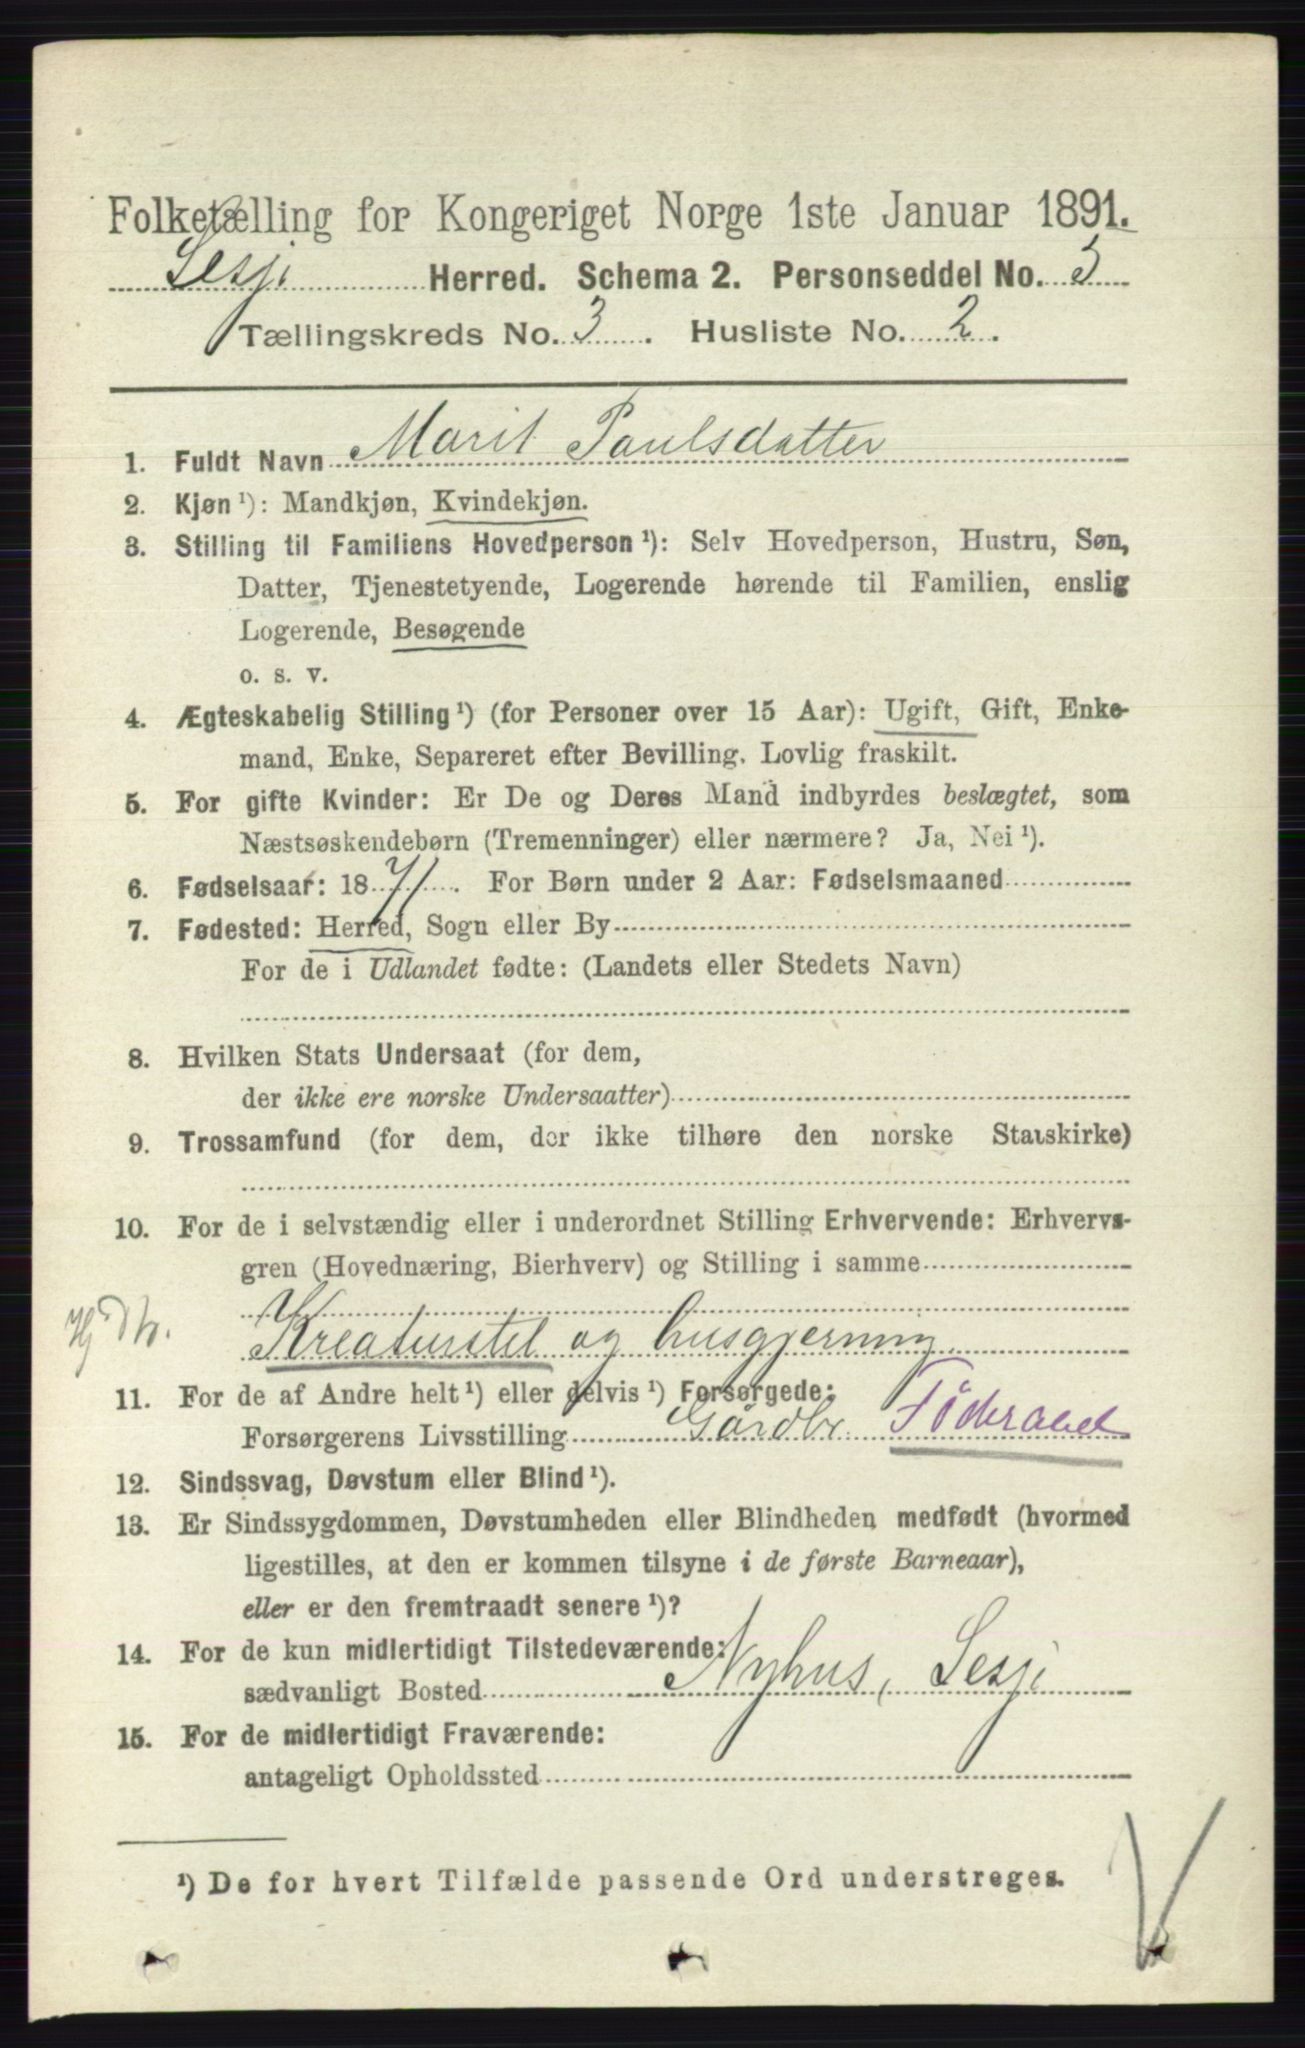 Folketælling for Kongeriget Norge 1ste Januar 1891.
Lesje Herred. Schema 2. Personseddel No. 5
Tællingskreds No. 3. Husliste No. 2.
1. Fuldt Navn Marit Paulsdatter
2. Kjøn ¹): Mandkjøn, Kvindekjøn.
3. Stilling til Familiens Hovedperson ¹): Selv Hovedperson, Hustru, Søn,
Datter, Tjenestetyende, Logerende hørende til Familien, enslig
Logerende, Besøgende
o. s. v.
4. Ægteskabelig Stilling ¹) (for Personer over 15 Aar): Ugift, Gift, Enke-
mand, Enke, Separeret efter Bevilling. Lovlig fraskilt.
5. For gifte Kvinder: Er De og Deres Mand indbyrdes beslægtet, som
Næstsøskendebørn (Tremenninger) eller nærmere? Ja, Nei ¹).
6. Fødselsaar: 1871. For Børn under 2 Aar: Fødselsmaaned
7. Fødested: Herred, Sogn eller By
For de i Udlandet fødte: (Landets eller Stedets Navn)
8. Hvilken Stats Undersaat (for dem,
der ikke ere norske Undersaatter)
9. Trossamfund (for dem, der ikke tilhøre den norske Statskirke)
10. For de i selvstændig eller i underordnet Stilling Erhvervende: Erhvervs-
gren (Hovednæring, Bierhverv) og Stilling i samme
Kreaturstel og husgjerning
11. For de af Andre helt ¹) eller delvis ¹) Forsørgede:
Forsørgerens Livsstilling Gårdbr. Föderaad
12. Sindssvag, Døvstum eller Blind ¹).
13. Er Sindssygdommen, Døvstumheden eller Blindheden medfødt (hvormed
ligestilles, at den er kommen tilsyne i de første Barneaar),
eller er den fremtraadt senere ¹)?
14. For de kun midlertidigt Tilstedeværende:
sædvanligt Bosted Nyhus, Lesje
15. For de midlertidigt Fraværende:
antageligt Opholdssted
¹) De for hvert Tilfælde passende Ord understreges.